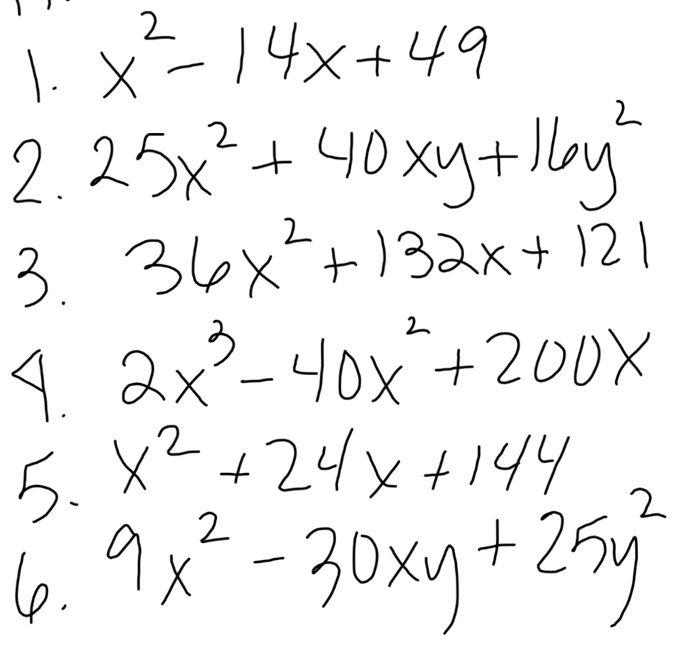 1. x² - 14x + 49
2. 25x² + 40xy + 16y²
3. 36x² + 132x + 121
4. 2x³ - 40x² + 200x
5. x² + 24x + 144
6. 9x² - 30xy + 25y²